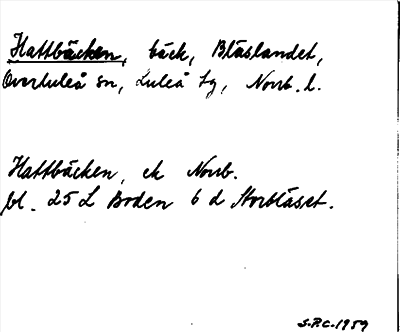 Hattbäcken, bäck, Blåslandet,
Överluleå sn, Luleå tg, Norrb. l.
Hattbäcken, ek Norrb.
bl. 25 L Boden 6 d Storblåset.
S.P.C. 1959